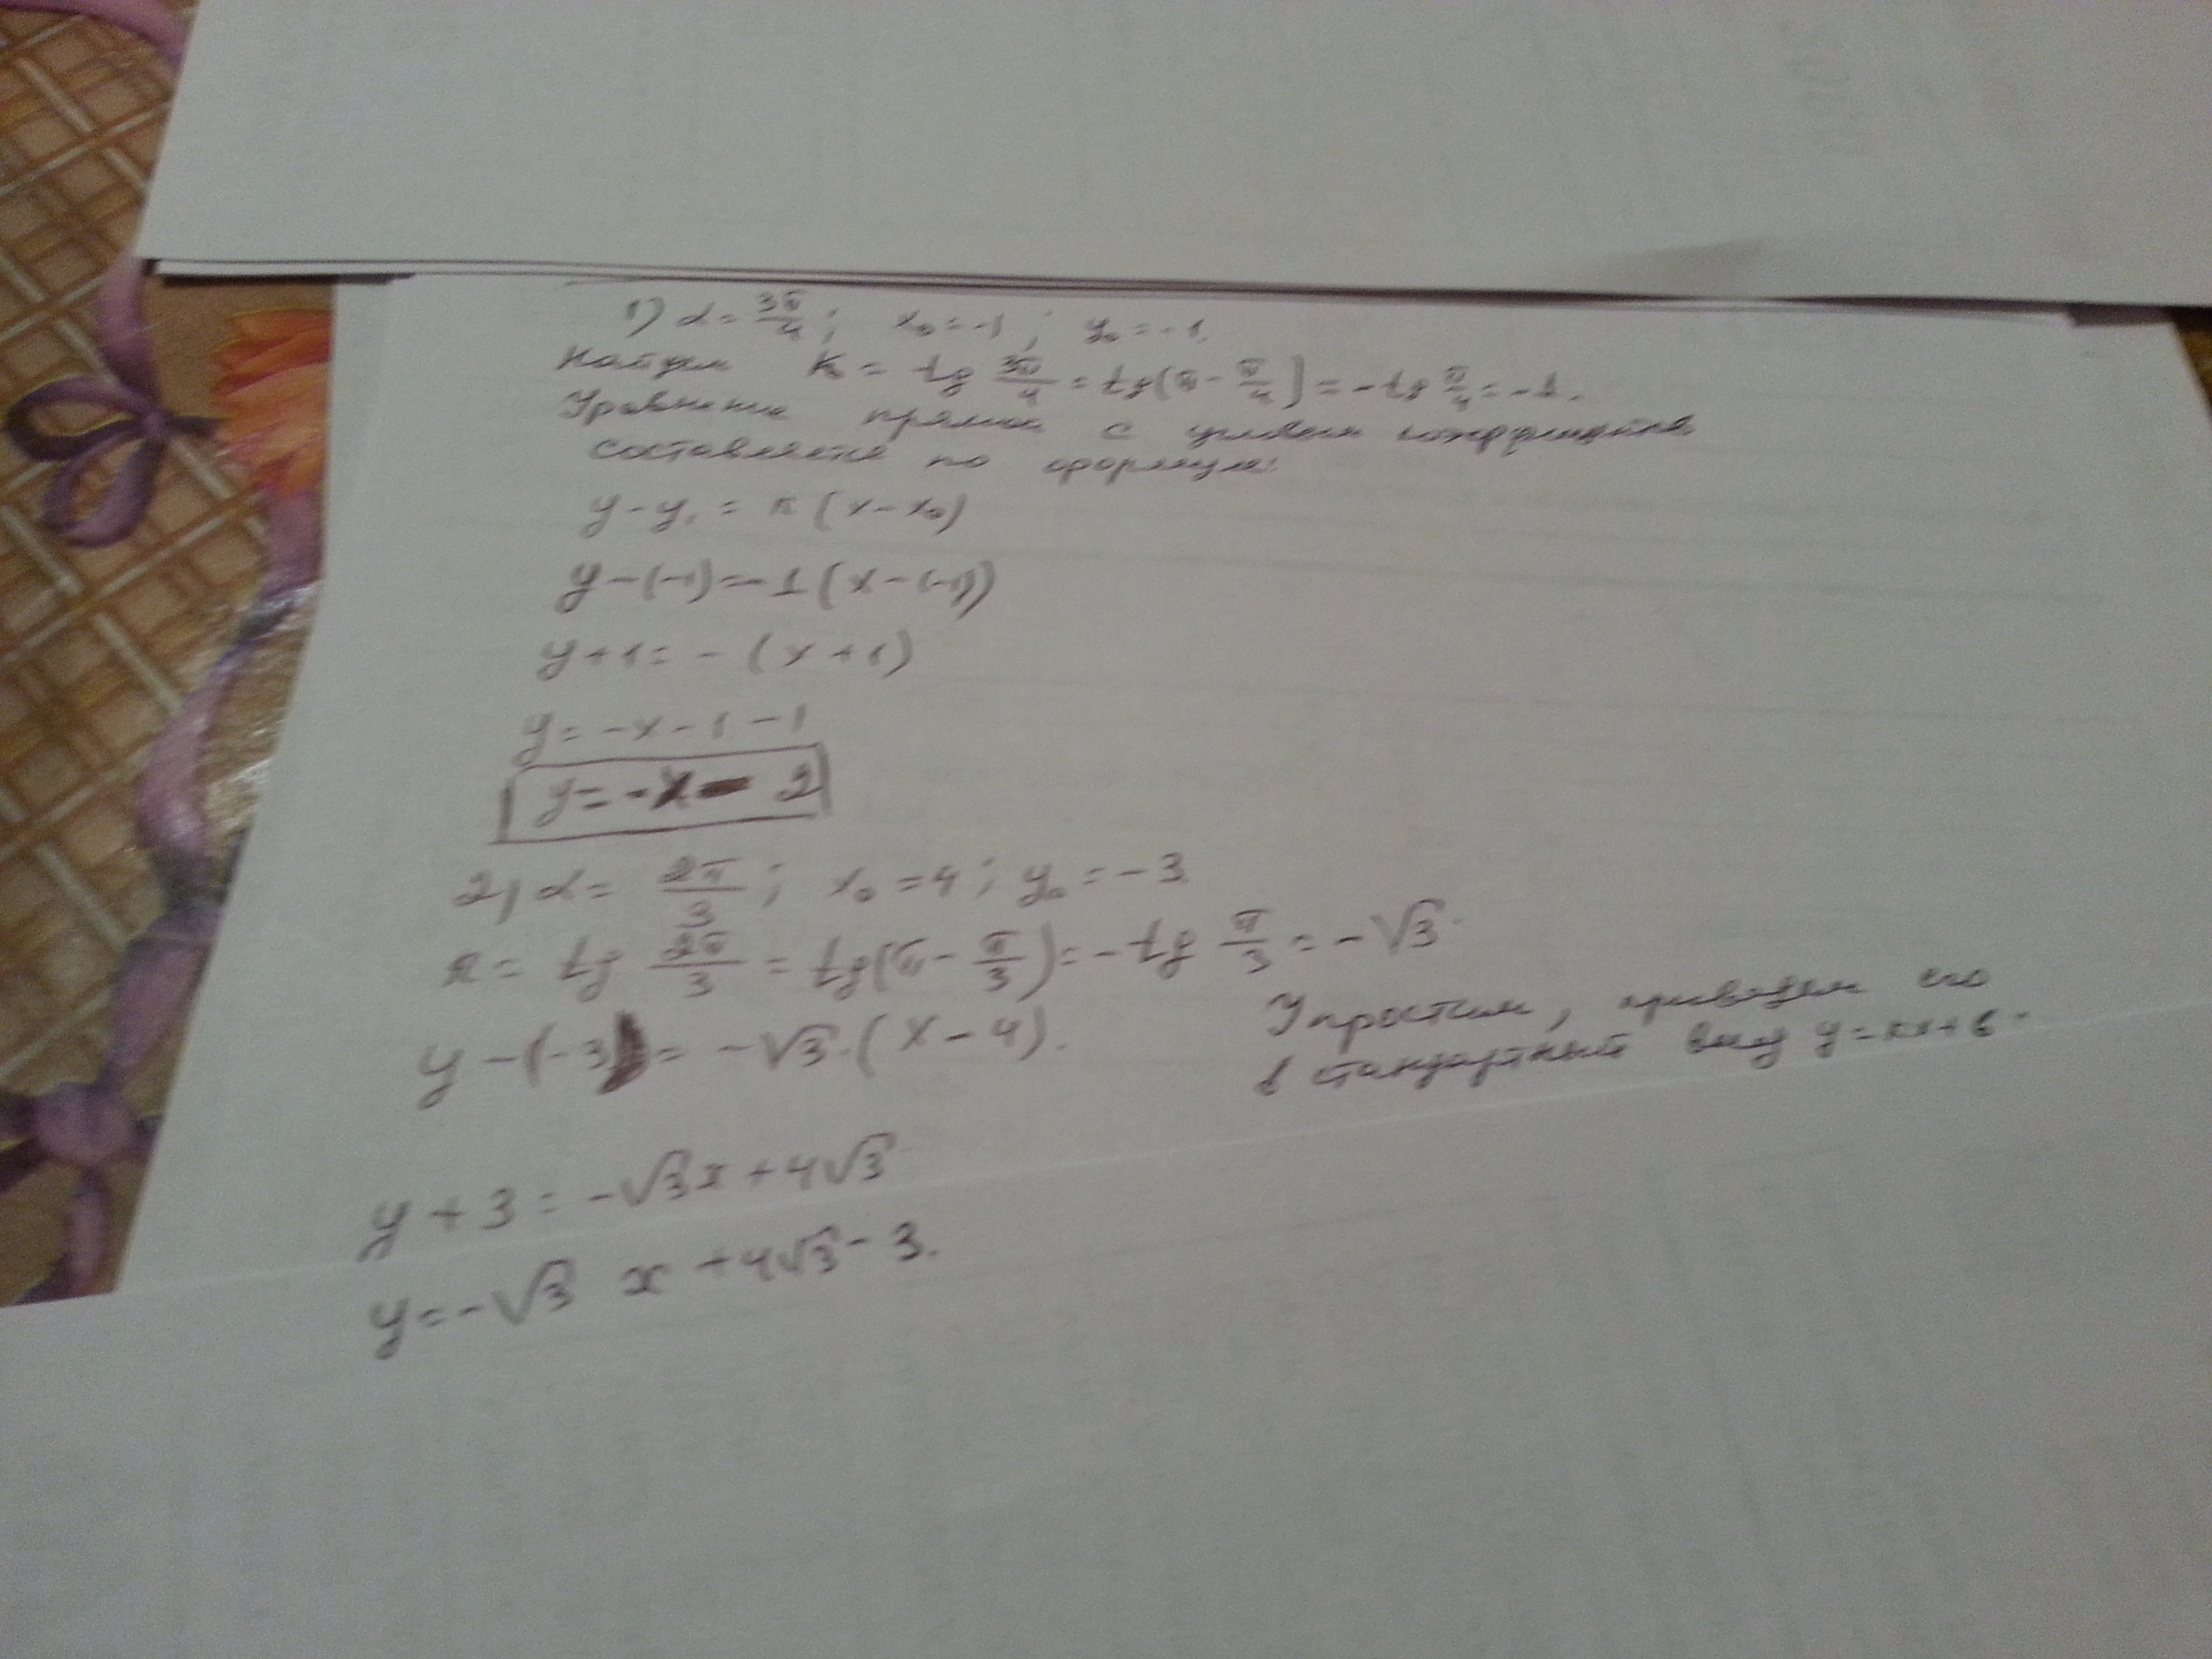 1) α = 3π/4 ; x₀ = -1 ; y₀ = -1.
Найдем k = tg 3π/4 = tg(π - π/4) = -tg π/4 = -1.
Уравнение прямой с угловым коэффициентом
составляется по формуле:
y - y₁ = k (x - x₀)
y - (-1) = -1 (x - (-1))
y + 1 = - (x + 1)
y = -x - 1 - 1
y = -x - 2
2) α = 2π/3 ; x₀ = 4 ; y₀ = -3
k = tg 2π/3 = tg(π - π/3) = -tg π/3 = -√3.
y - (-3) = -√3 · (x - 4). Упростим, приведем его
в стандартный вид y = kx + b.
y + 3 = -√3x + 4√3
y = -√3 x + 4√3 - 3.